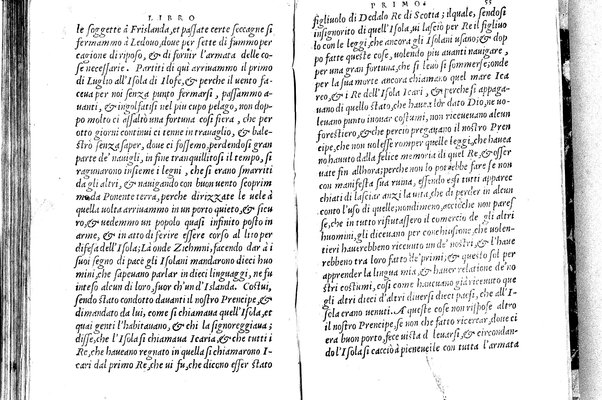 LIBRO
le soggette à Frislanda, et passate certe seccagne si
fermammo à Ledouo, doue per sette dì fummo per
cagione di riposo, & di fornir l'armata delle co
se necessarie. Partiti di qui arriuammo il primo
di Luglio all'Isola di Ilofe, & perche il uento fa
ceua per noi senza punto fermarsi, passammo a
uanti, & ingolfatisi nel piu cupo pelago, non dop
po molto ci assaltò una fortuna così fiera, che per
otto giorni continui ci tenne in trauaglio, & bale
strò senza saper, doue ci fossemo, perdendosi gran
parte de' nauigli, in fine tranquillitosi il tempo, si
ragunarono insieme i legni, che si erano smarriti
da gli altri, & nauigando con buon uento scoprim
mo da Ponente terra, perche dirizzate le uele à
quella uolta arriuammo in un porto quieto, & sicu
ro, & uedemmo un popolo quasi infinito posto in
arme, & in atto di ferire essere corso al lito per
difesa dell'Isola; Là onde Zichmni, facendo dar à i
suoi segno di pace gli Isolani mandarono dieci huo
mini, che sapeuano parlar in dieci linguaggi, ne fu
inteso alcun di loro, fuor ch'un d'Islanda. Costui,
sendo stato condotto dauanti il nostro Prencipe, &
dimandato da lui, come si chiamaua quell'Isola, et
quai genti l'habitauano, & chi la signoreggiaua;
disse, che l'Isola si chiamaua Icaria, & che tutti i
Re, che haueano regnato in quella si chiamarono I-
cari dal primo Re, che ui fu, che dicono esser stato
PRIMO. 55
figliuolo di Dedalo Re di Scotia; il quale, sendosi
insignorito di quell'Isola, ui lasciò per Re il figl
iuolo con le leggi, che ancora gli Isolani usano; & dop
po fatte queste cose, uolendo piu auanti nauigare,
per una gran fortuna, che si leuò si sommerse; onde
per la sua morte ancora chiamano quel mare Ica
reo, & i Re dell'Isola Icari, & perche si appaga-
uano di quello stato, che haueua lor dato Dio, ne uo-
leuano punto inouar costumi, non riceueuano alcun
forestiero, & che perciò pregauano il nostro Pren-
cipe, che non uolesse romper quelle leggi, che haueua
no hauuto dalla felice memoria di quel Re, & osser
uate fin allhora; perche non lo potrebbe fare se non
con manifesta sua ruina, essendo essi tutti apparec
chiati di lasciar anzi la uita, che di perder in alcun
conto l'uso di quelle; nondimeno, acciochè non pares
se, che in tutto rifiutassero il comercio de gli altri
huomini, gli diceuano per conchiusione, che uolen-
tieri hauerebbeno riceuuto un de' nostri, & l'haue
rebbono tra loro fatto de' primi; & questo sol per
apprender la lingua mia, & hauer relatione de' no
stri costumi, così come haueuano già riceuuto que
gli altri dieci d'altri diuersi dieci paesi, che all'I-
sola erano uenuti. A queste cose non rispose altro
il nostro Prencipe, se non che fatto ricercar, doue ci
era buon porto, fece uista di leuarsi, & circondan-
do l'Isola si cacciò à piene uele con tutta l'armata